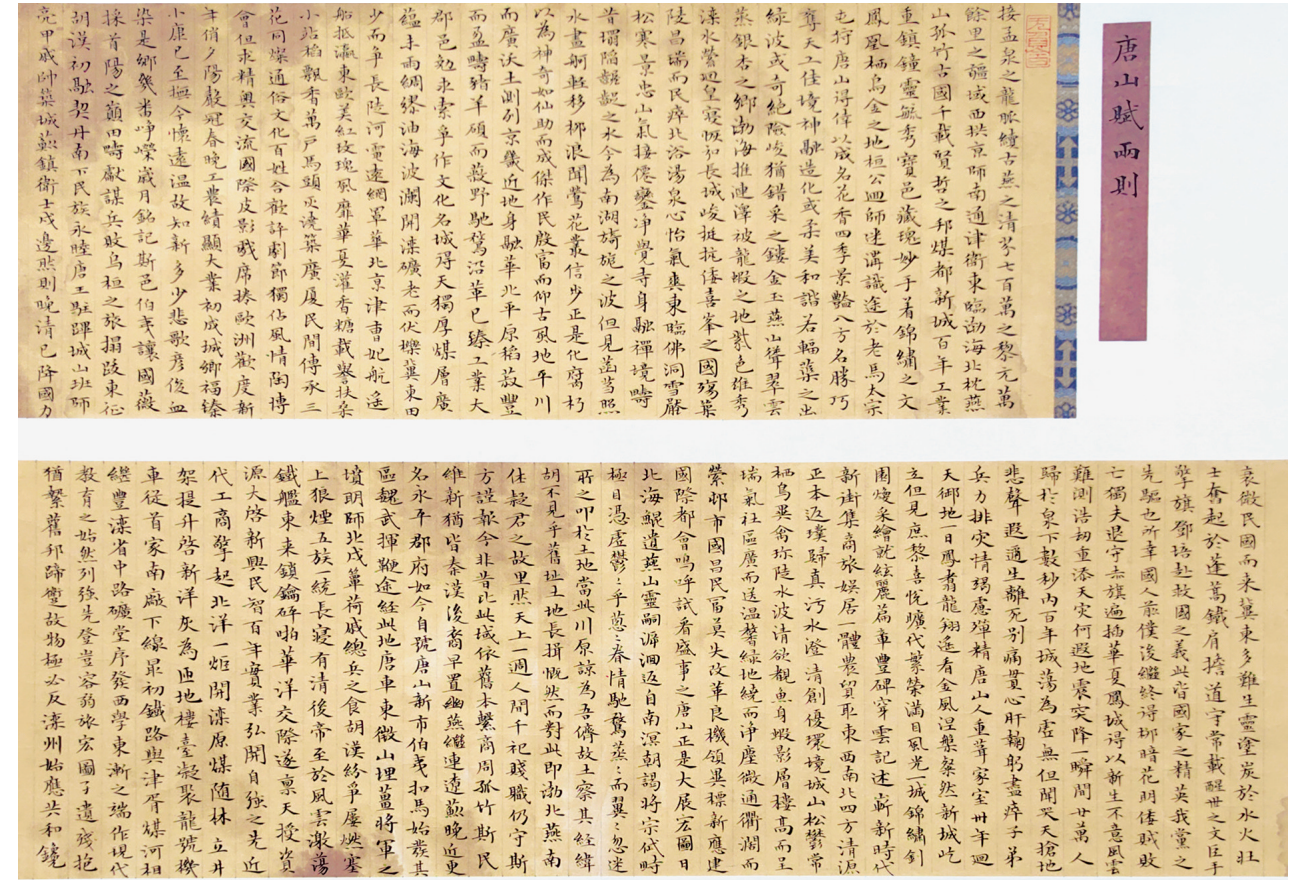 唐山賦兩則
接孟泉之龍脈續古燕之清芬七百萬之黎元萬
餘里之疆域西拱京師南通津衛東臨渤海北枕燕
山孤竹古國千載賢哲之邦煤都新城百年工業
重鎮鐘靈毓秀寶邑藏瑰妙手着錦繡之文
鳳凰栖烏金之地桓公回師迷溝識途於老馬太宗
屯狩唐山得偉以成名花香四季景豔八方名勝巧
奪天工佳境神融造化或柔美和諧若之出
綠波或奇絕險峻猶錯采之鏤金玉燕山聳翠雲
蒸銀杏之鄉渤海推漣澤被龍蝦之地紫色維秀
灤水縈迴皇寢恢弘長城峻挺抗倭喜峯之國殤葉
陵昌瑞而民瘁北浴湯泉心怡氣爽東臨佛洞雪嚴
松寒景忠山氣接僊鑾淨覺寺身融禪境疇
昔塌陷齷齪之水今為南湖旖旎之波但見菡萏照
水畫舸輕移柳浪聞鶯花叢信步正是化腐朽
以為神奇如仙助而成傑作民殷富而仰古風地平川
而廣沃土測列京畿近地身融華北平原稻菽豐
而盈疇豬羊碩而散野馳騖沿革已臻工業大
郡邑勉求索爭作文化名城得天獨厚煤層廣
蘊未雨綢繆油海波瀾開灤礦老而伏櫪冀東田
少而爭長陡河電遠網罩華北京津曹妃航遙
船抵瀛東歐美紅玫瑰風靡華夏灌香糖載譽扶桑
小站稻飄香萬戶馬頭澆築廣厦民間傳承三
花同燦通俗文化百姓合歡評劇節獨佔風情陶博
會但求精與交流國際皮影戲席捲歐洲歡度新
年俏夕陽嚴冠春晚工農績顯大業初成城鄉福臻
小康已至撫今懷遠温故知新多少悲歌彥俊血
染是鄉幾番崢嶸歲月銘記斯邑伯夷讓國薇
採首陽之巔田疇獻謀兵敗烏桓之旅揭跋東征
胡漢初融契丹南下民族永睦唐王駐蹕城山班師
亮甲戚帥築城薊鎮衛士戍邊然則晚清已降國力
衰微民國而來冀東多難生靈塗炭於水火壯
士奮起於蓬蒿鐵肩擔道守常載醒世之文巨手
擎旗鄧培赴救國之義此皆國家之精英我黨之
先驅也所幸國人前僕後繼終得柳暗花明倭賊敗
亡獨夫退守赤旗遍插華夏鳳城得以新生不意風雲
難測浩劫重添天灾何遐地震突降一瞬間廿萬人
歸於泉下數秒内百年城蕩為虛無但聞哭天搶地
悲聲遐邇生離死别痛貫心肝鞠躬盡瘁子弟
兵力排灾情竭慮殫精唐山人重葺家室卅年迴
天御地一日鳳翥龍翔遥看金風涅槃粲然新城屹
立但見庶黎喜悦曠代繁榮滿目風光一城錦繡釗
圃煥采繪就絃麗篇章豐碑穿雲記述嶄新時代
新街集商旅娛居一體農貿聚東西南北四方清源
正本返璞歸真污水澄清創優環境城山松鬱常
栖烏與禽坵陡水波清欲觀魚身蝦影層樓高而呈
瑞氣社區廣而送温馨綠地繞而淨塵微通衢濶而
縈邨市國昌民富莫失改革良機領異標新應建
國際都會嗚呼試看盛事之唐山正是大展宏圖日
北海鯤遺燕山靈嗣游洄返自南溟朝謁將宗佇時
極目憑虛鬱鬱乎蔥蔥春情馳騖蒸蒸而翼翼忽迷
所之叩於土地當此川原諒為吾儕故土察其經緯
胡不見乎舊址土地長揖慨然而對此即渤北燕南
佳疑君之故里然天上一週人間千祀賤職仍守斯
方謹報今非昔比此城依舊本繫商周孤竹斯民
維新猶皆秦漢後裔早置幽燕繼連遼薊晚近更
名永平郡府如今自號唐山新市伯夷扣馬始發其
區魏武揮鞭途經此地唐車東徵山埋薑將軍之
墳明師北戍簞荷戚總兵之食胡漢紛爭屢燃塞
上狼煙五族一統長寢有清後帝至於風雲激蕩
鐵艦東來鎖鑰碎啪華洋交際遂禀天授資
源大啓新興民智百年實業弘開自強之先近
代工商擎起北洋一炬開灤原煤隨林立井
架提升啓新洋灰為匝地樓臺凝聚龍號機
車從首家南廠下線最初鐵路與津胥煤河相
繼豐灤省中路礦堂序發西學東漸之端作現代
教育之始然列強先登豈容弱旅宏圖孑遺殘抱
猶繫舊邦蹄蹩故物極必反灤州始應共和鐘